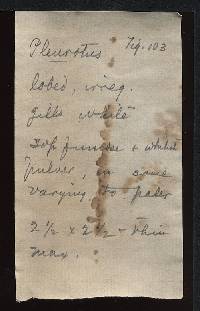 Pleurotus Fig. 103
lobed, irreg.
gills white
top
in some
varying to paler
2 1/2 x 2 1/2 - thin
max.